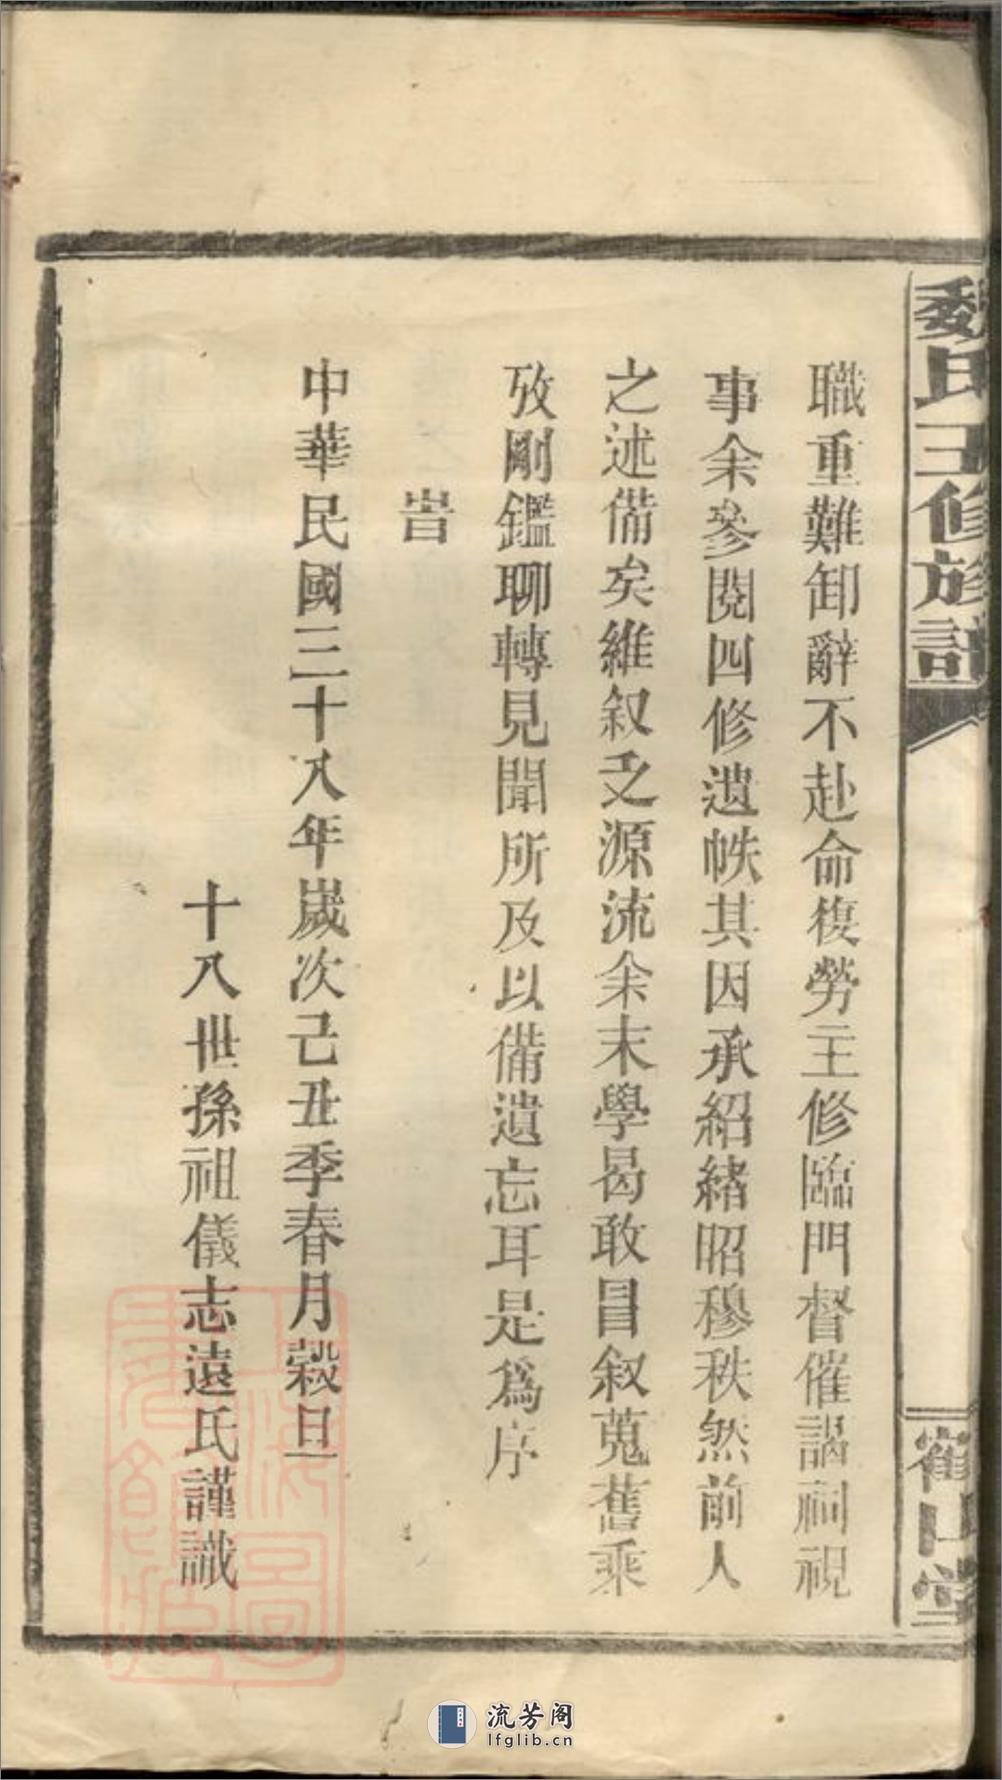 魏氏五修族譜
崔山堂
職重難卸辭不赴命復勞主修臨門督催謁祠視
事余參閱四修遺帙其因承紹緒昭穆秩然前人
之述備矣維叙爻源流余末學曷敢冒叙蒐舊乘
攷剛鑑聊轉見聞所及以備遺忘耳是爲序
旹
中華民國三十八年歲次己丑季春月穀旦
十八世孫祖儀志遠氏謹識
上海圖書館藏
流芳阁
lfglib.cn